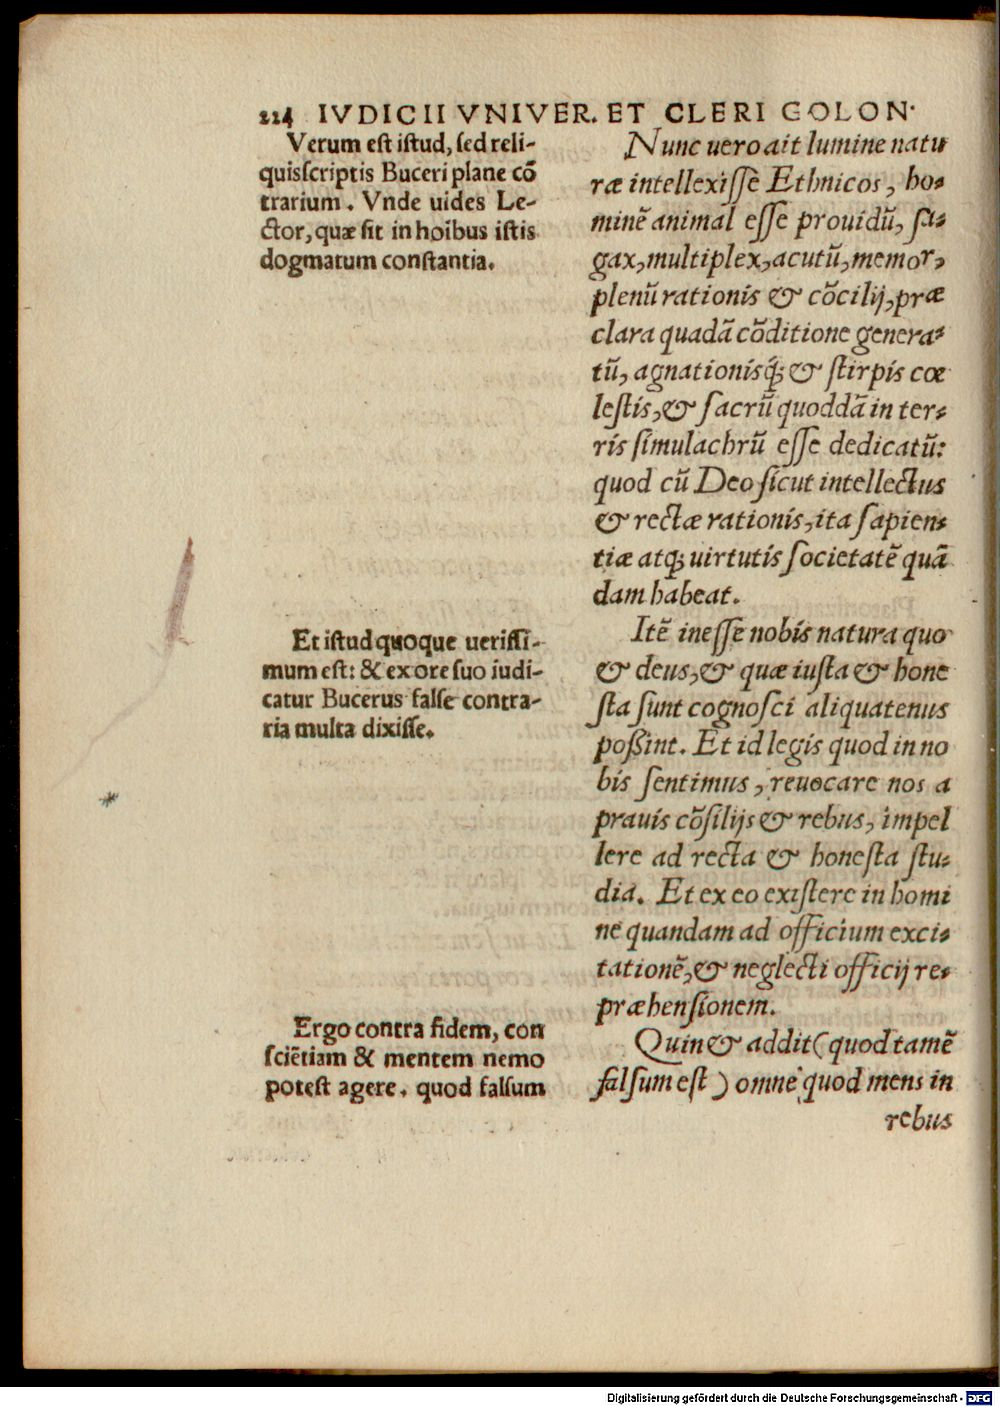 224 IVDICII VNIVER. ET CLERI COLON.
Verum est istud, sed reli-
quis scriptis Buceri plane cō
trarium. Vnde uides Le-
ctor, quæ sit in hoībus istis
dogmatum constantia.
Et istud quoque uerissi-
mum est: & ex ore suo iudi-
catur Bucerus false contra-
ria multa dixisse.
Ergo contra fidem, con
sciētiam & mentem nemo
potest agere, quod falsum
Nunc uero ait lumine natu
ræ intellexisse Ethnicos, ho-
minē animal esse prouidū, sa-
gax, multiplex, acutū, memor,
plenū rationis & cōcilij, præ
clara quadā cōditione genera-
tū, agnationisq́; & stirpis cœ
lestis, & sacrū quoddā in ter-
ris simulachrū esse dedicatū:
quod cū Deo sicut intellectus
& rectæ rationis, ita sapien-
tiæ atq; uirtutis societatē quā
dam habeat.
Itē inesse nobis natura quo
& deus, & quæ iusta & hone
sta sunt cognosci aliquatenus
possint. Et id legis quod in no
bis sentimus, reuocare nos a
prauis cōsilijs & rebus, impel
lere ad recta & honesta stu-
dia. Et ex eo existere in homi
ne quandam ad officium exci-
tationē, & neglecti officij re-
præhensionem.
Quin & addit (quod tamē
falsum est) omne quod mens in
rebus
Digitalisierung gefördert durch die Deutsche Forschungsgemeinschaft - DFG